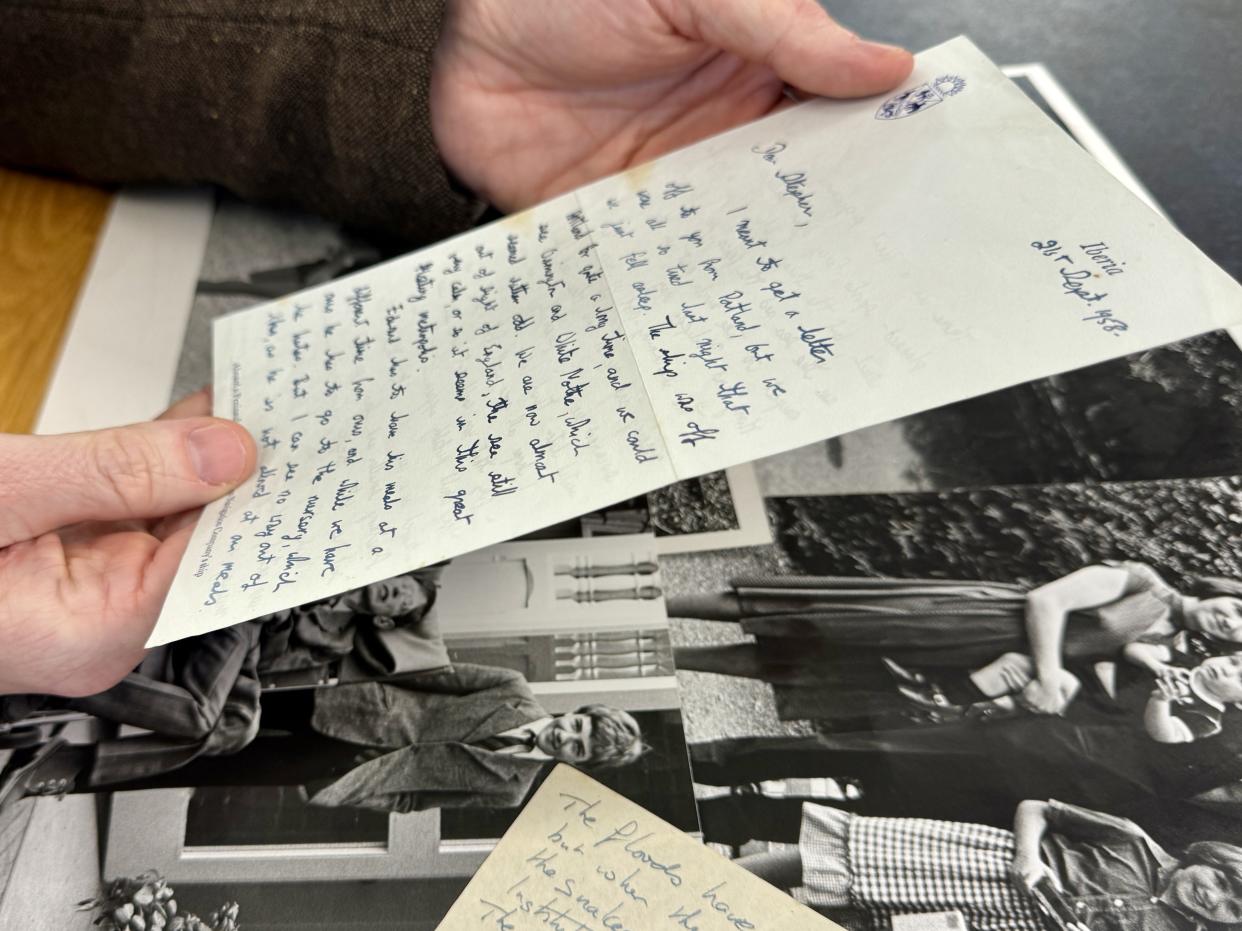 Iberia
26 Sept. 1958.
Dear Stephen,
I meant to get a letter
off to you from Portland, but we
were all so tired last night that
we just fell asleep. The ship was off
for quite a long time, and we could
see and White Nothe, which
seemed odd. We are now almost
out of sight of England, the sea still
very calm, or so it seems in this great
floating metropolis.
Edward has to have his meals at a
different time from ours, and while we have
ours he has to go to the nursery, which
he hates. But I can see no way out of
this, as he is not allowed at our meals
Company's ship
The Ploods have
but when the
the Snake
Institut
The